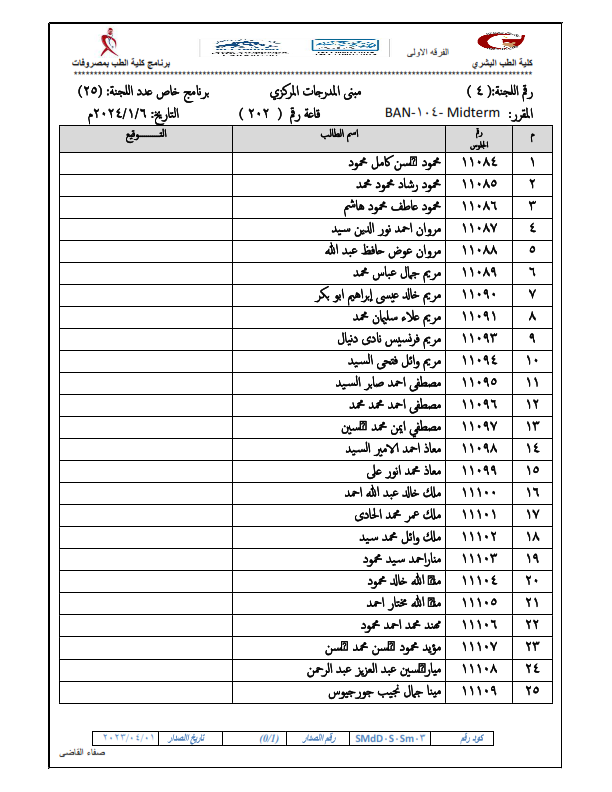 الفرقه الاولى
كلية الطب البشري
برنامج كلية الطب بمصروفات
رقم اللجنة: ( ٤ ) مبنى المدرجات المركزي برنامج خاص عدد اللجنة: (٢٥)
المقرر: BAN-١٠٤- Midterm قاعة رقم ( ٢٠٢ ) التاريخ: ٢٠٢٤/١/٦م
م رقم الجلوس اسم الطالب التـــــوقيع
١ ١١٠٨٤ محمود سن كامل محمود
٢ ١١٠٨٥ محمود رشاد محمود محمد
٣ ١١٠٨٦ محمود عاطف محمود هاشم
٤ ١١٠٨٧ مروان احمد نور الدين سيد
٥ ١١٠٨٨ مروان عوض حافظ عبد الله
٦ ١١٠٨٩ مريم جمال عباس محمد
٧ ١١٠٩٠ مريم خالد عيسى إبراهيم ابو بكر
٨ ١١٠٩١ مريم علاء سليمان محمد
٩ ١١٠٩٣ مريم فرنسيس نادى دنيال
١٠ ١١٠٩٤ مريم وائل فتحى السيد
١١ ١١٠٩٥ مصطفى احمد صابر السيد
١٢ ١١٠٩٦ مصطفى احمد محمد محمد
١٣ ١١٠٩٧ مصطفي ايمن محمد سين
١٤ ١١٠٩٨ معاذ احمد الامير السيد
١٥ ١١٠٩٩ معاذ محمد انور على
١٦ ١١١٠٠ ملك خالد عبد الله احمد
١٧ ١١١٠١ ملك عمر محمد الحادى
١٨ ١١١٠٢ ملك وائل محمد سيد
١٩ ١١١٠٣ مناراحمد سيد محمود
٢٠ ١١١٠٤ م الله خالد محمود
٢١ ١١١٠٥ م الله مختار احمد
٢٢ ١١١٠٦ مهند محمد احمد محمود
٢٣ ١١١٠٧ مؤيد محمود سن محمد سن
٢٤ ١١١٠٨ ميار سين عبد العزيز عبد الرحمن
٢٥ ١١١٠٩ مينا جمال نجيب جورجيوس
كود رقم SMdD٠S٠Sm٠٣ رقم الصدار (0/1) تاريخ الصدار ٢٠٢٣/٠٤/٠١
صفاء القاضى